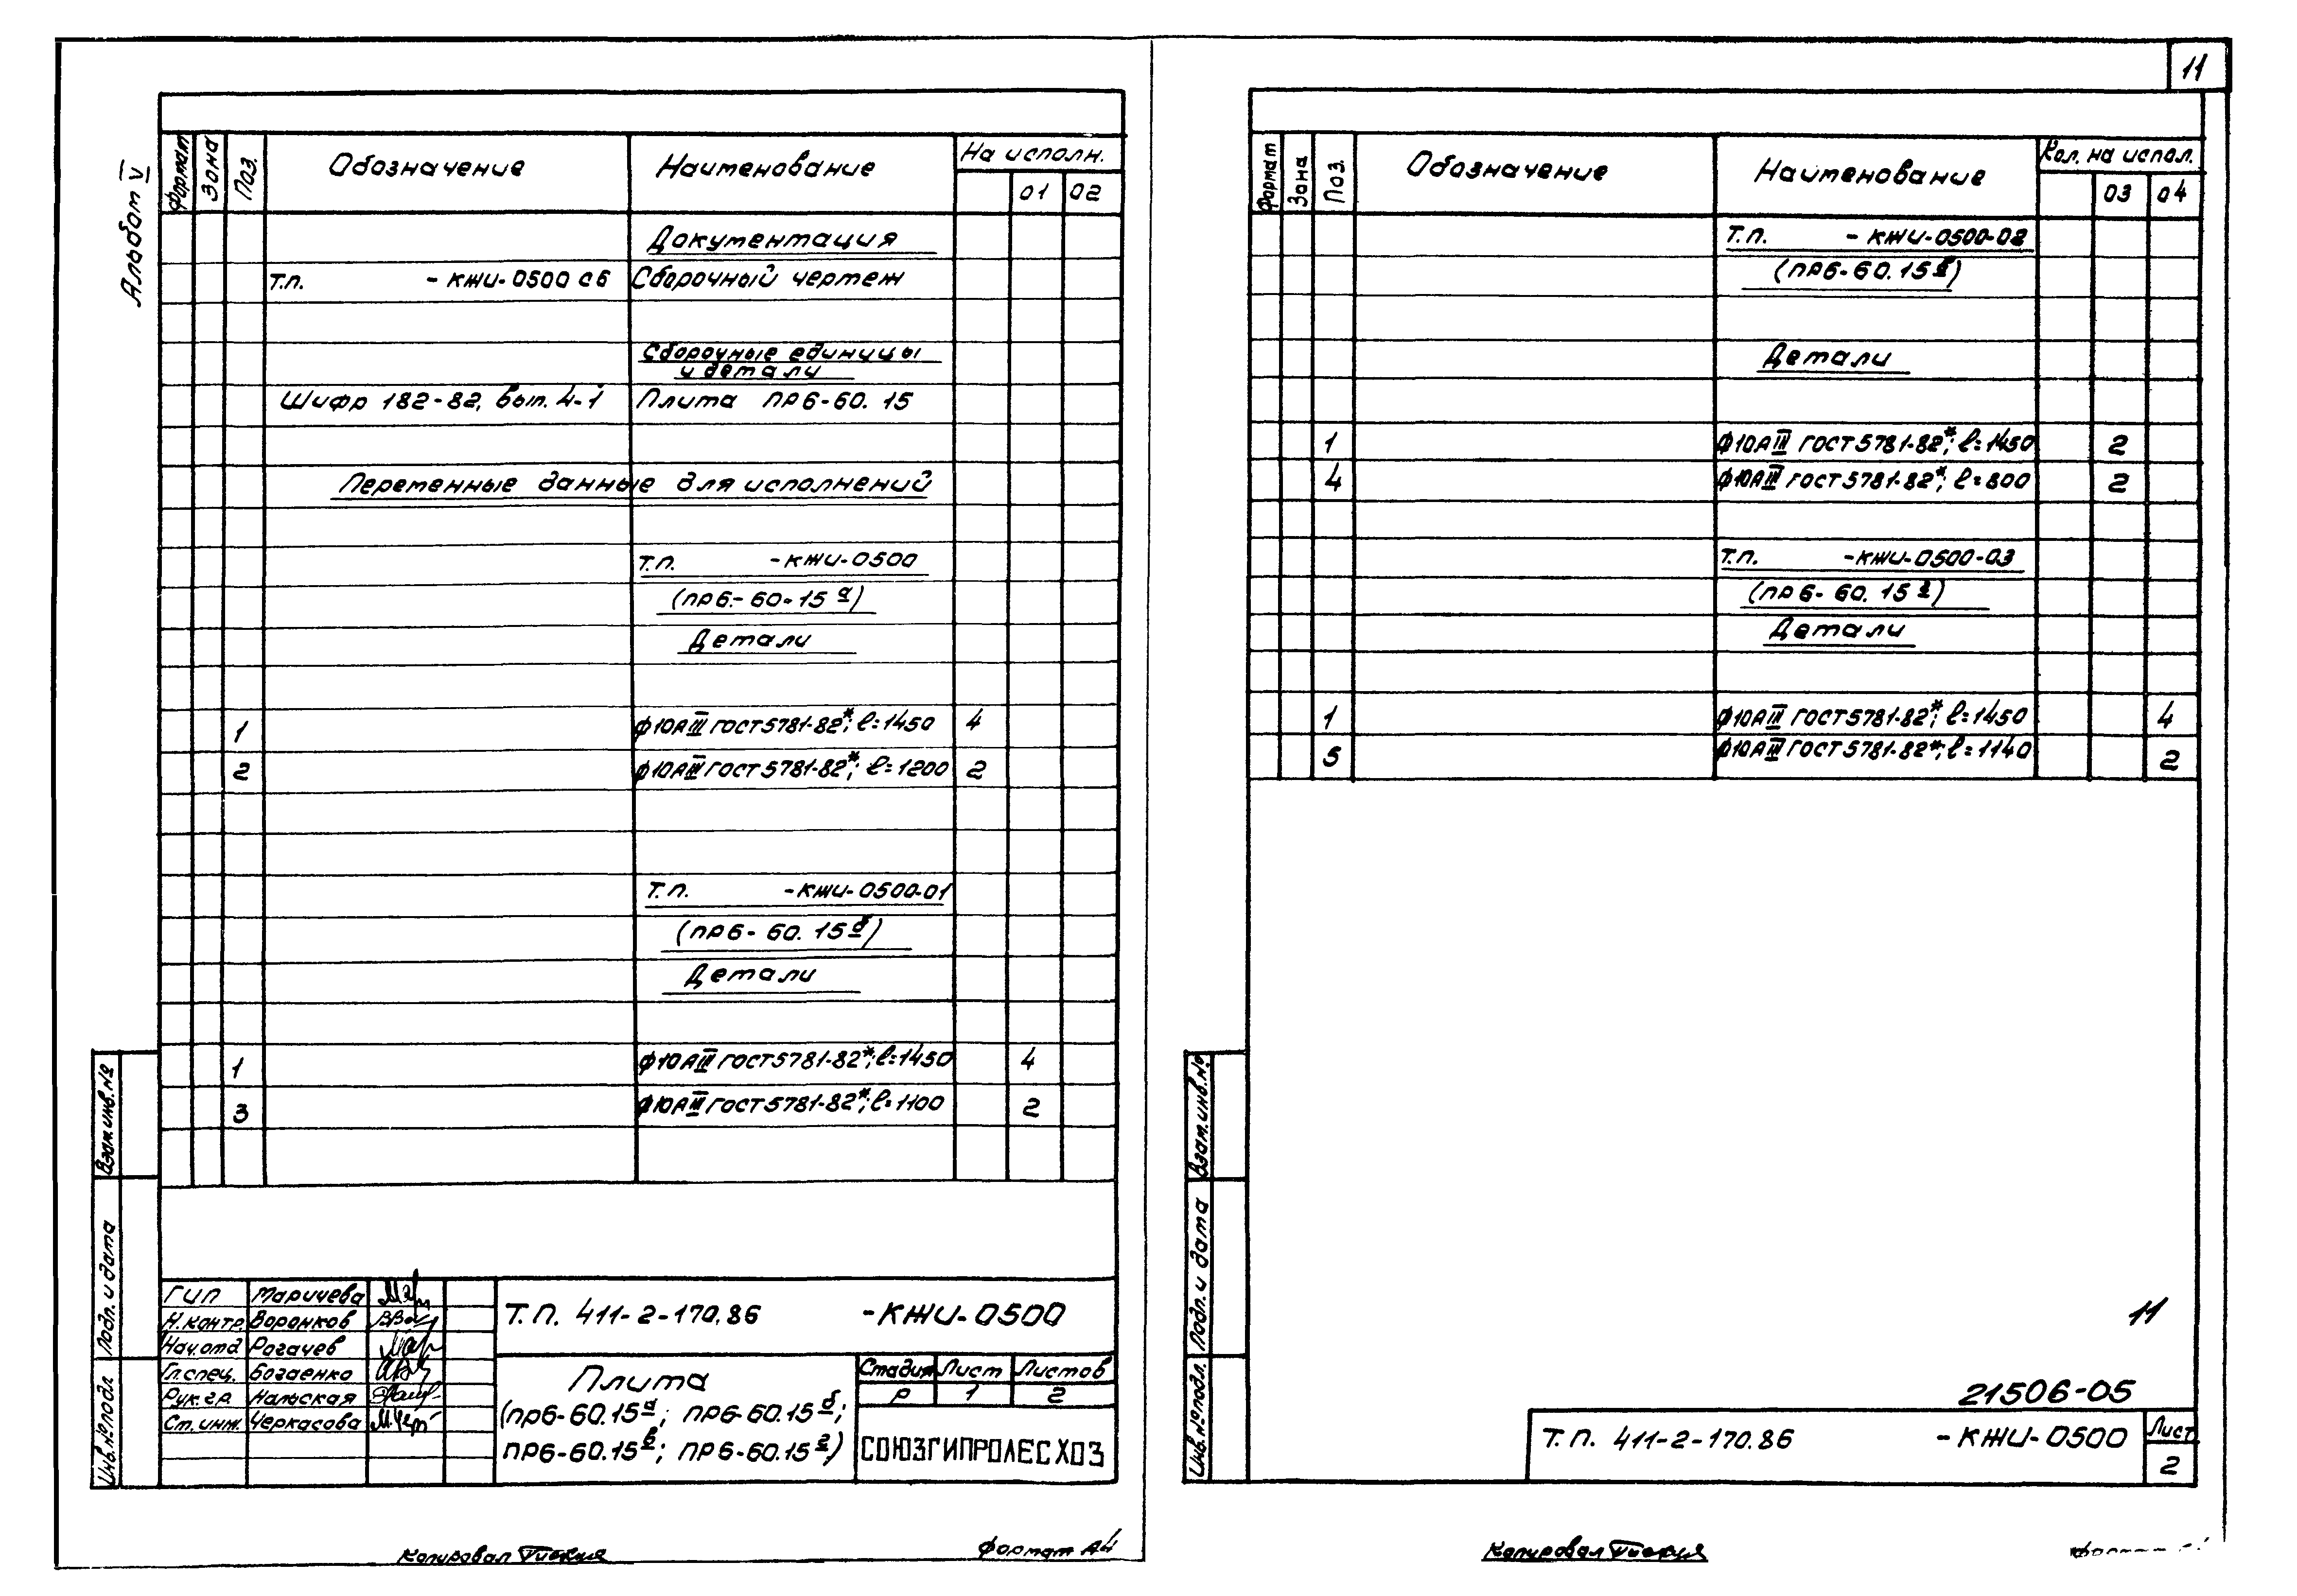 11
Альбом V
Формат Зона Поз. Обозначение Наименование На исполн.
01 02
Документация
Т.п. -КЖИ-0500 СБ Сборочный чертеж
Сборочные единицы
и детали
Шифр 182-82, вып. 4-1 Плита пр6-60.15
Переменные данные для исполнений
Т.п. -КЖИ-0500
(пр6-60-15а)
Детали
1 ф10АIII ГОСТ 5781-82*; ℓ=1450 4
2 ф10АIII ГОСТ 5781-82*; ℓ=1200 2
Т.п. -КЖИ-0500-01
(пр6-60.15б)
Детали
1 ф10АIII ГОСТ 5781-82*; ℓ=1450 4
3 ф10АIII ГОСТ 5781-82*; ℓ=1100 2
Взам.инв.№
Подп. и дата
Инв.№подл
ГИП Маричева
Н.контр. Воронков
Нач.отд Рогачев
Гл.спец. Богаенко
Рук.гр. Нальская
Ст.инж. Черкасова
Т.п. 411-2-170.86 -КЖИ-0500
Плита
(пр6-60.15а; пр6-60.15б;
пр6-60.15в; пр6-60.15г)
Стадия Лист Листов
Р 1 2
СОЮЗГИПРОЛЕСХОЗ
Копировал
Формат А4
Формат Зона Поз. Обозначение Наименование Кол. на испол.
03 04
Т.п. -КЖИ-0500-02
(пр6-60.15в)
Детали
1 ф10АIII ГОСТ 5781-82*; ℓ=1450 2
4 ф10АIII ГОСТ 5781-82*; ℓ=800 2
Т.п. -КЖИ-0500-03
(пр6-60.15г)
Детали
1 ф10АIII ГОСТ 5781-82*; ℓ=1450 4
5 ф10АIII ГОСТ 5781-82*; ℓ=1140 2
Взам.инв.№
Подп. и дата
Инв.№подл.
11
21506-05
Т.п. 411-2-170.86 -КЖИ-0500
Лист
2
Копировал
Формат